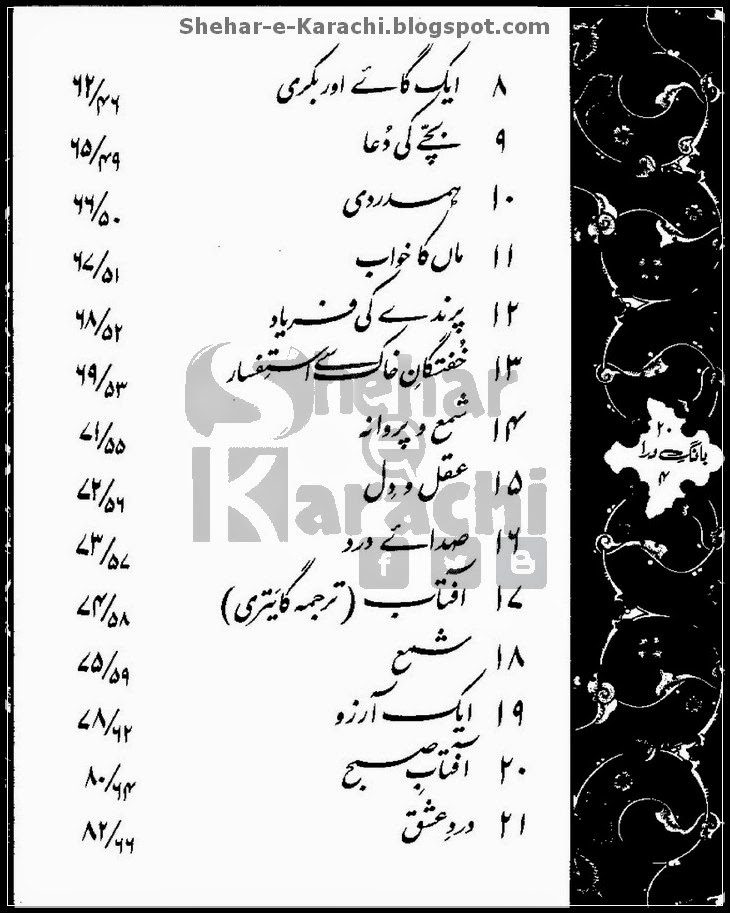 Shehar-e-Karachi.blogspot.com
۸ ایک گائے اور بکری ۶۲/۴۶
۹ بچّے کی دُعا ۶۵/۴۹
۱۰ ہمدردی ۶۶/۵۰
۱۱ ماں کا خواب ۶۷/۵۱
۱۲ پرندے کی فریاد ۶۸/۵۲
۱۳ خُفتگانِ خاک سے استِفسار ۶۹/۵۳
۱۴ شمع و پروانہ ۷۱/۵۵
۱۵ عقل و دِل ۷۲/۵۶
۱۶ صدائے درد ۷۳/۵۷
۱۷ آفتاب (ترجمہ گایَتری) ۷۴/۵۸
۱۸ شمع ۷۵/۵۹
۱۹ ایک آرزو ۷۸/۶۲
۲۰ آفتابِ صبح ۸۰/۶۴
۲۱ دردِ عشق ۸۲/۶۶
۲۰
بانگِ درا
۴
Shehar
e
Karachi